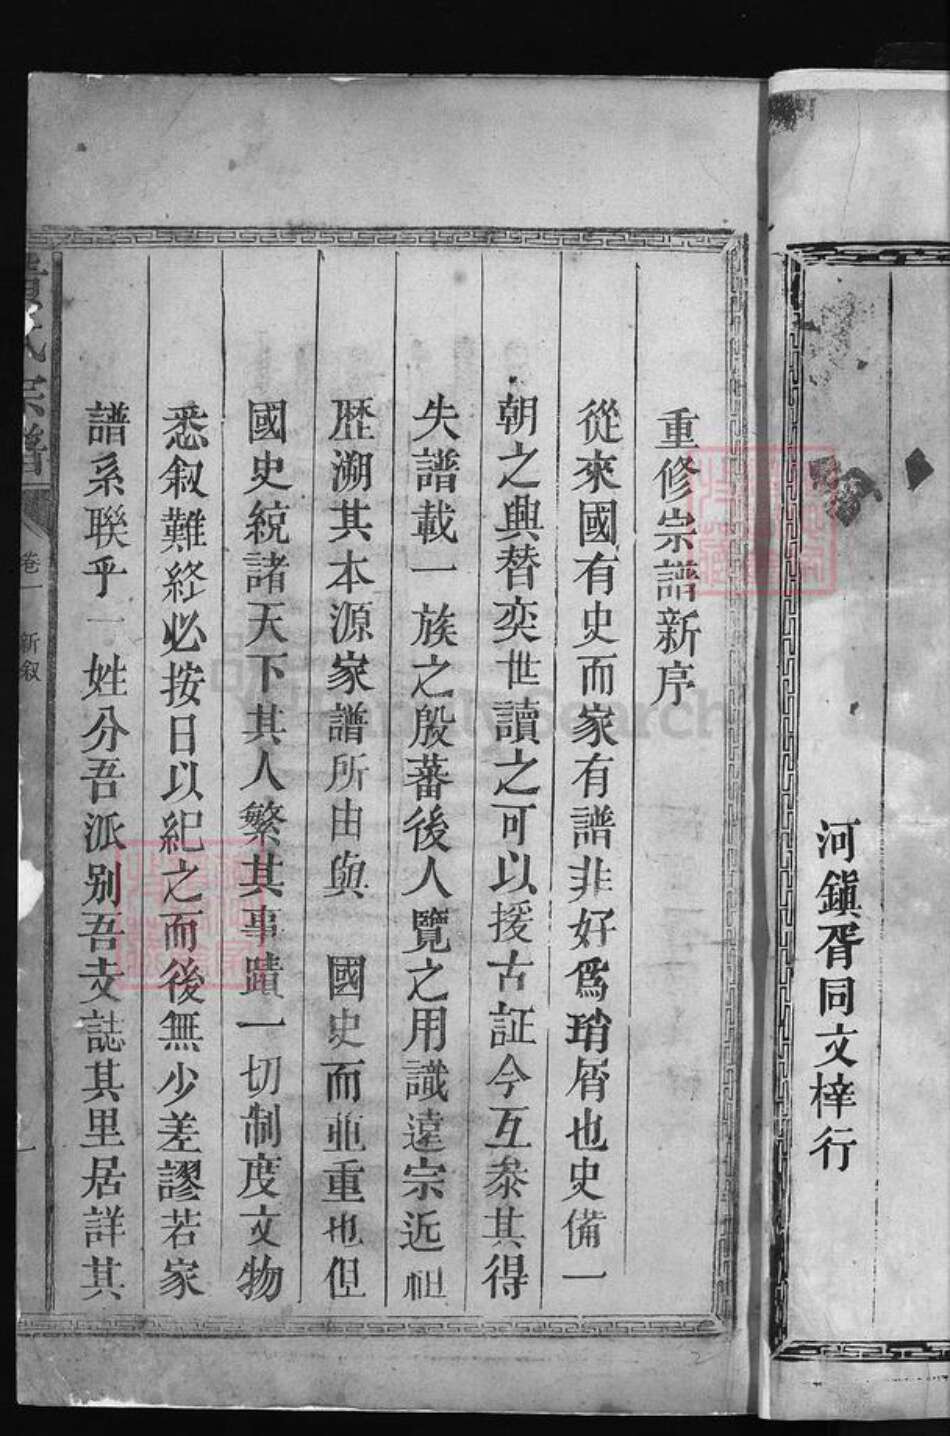 河鎮胥同文梓行
重修宗譜新序
從來國有史而家有譜非好爲瑣屑也史備一
朝之興替奕世讀之可以援古証今互叅其得
失譜載一族之殷蕃後人覽之用識遠宗近祖
歷溯其本源家譜所由與國史而並重也但
國史統諸天下其人繁其事蹟一切制度文物
悉叙難終必按日以紀之而後無少差謬若家
譜系聯乎一姓分吾派别吾支誌其里居詳其
氏宗譜
卷一
新叙
FamilySearch